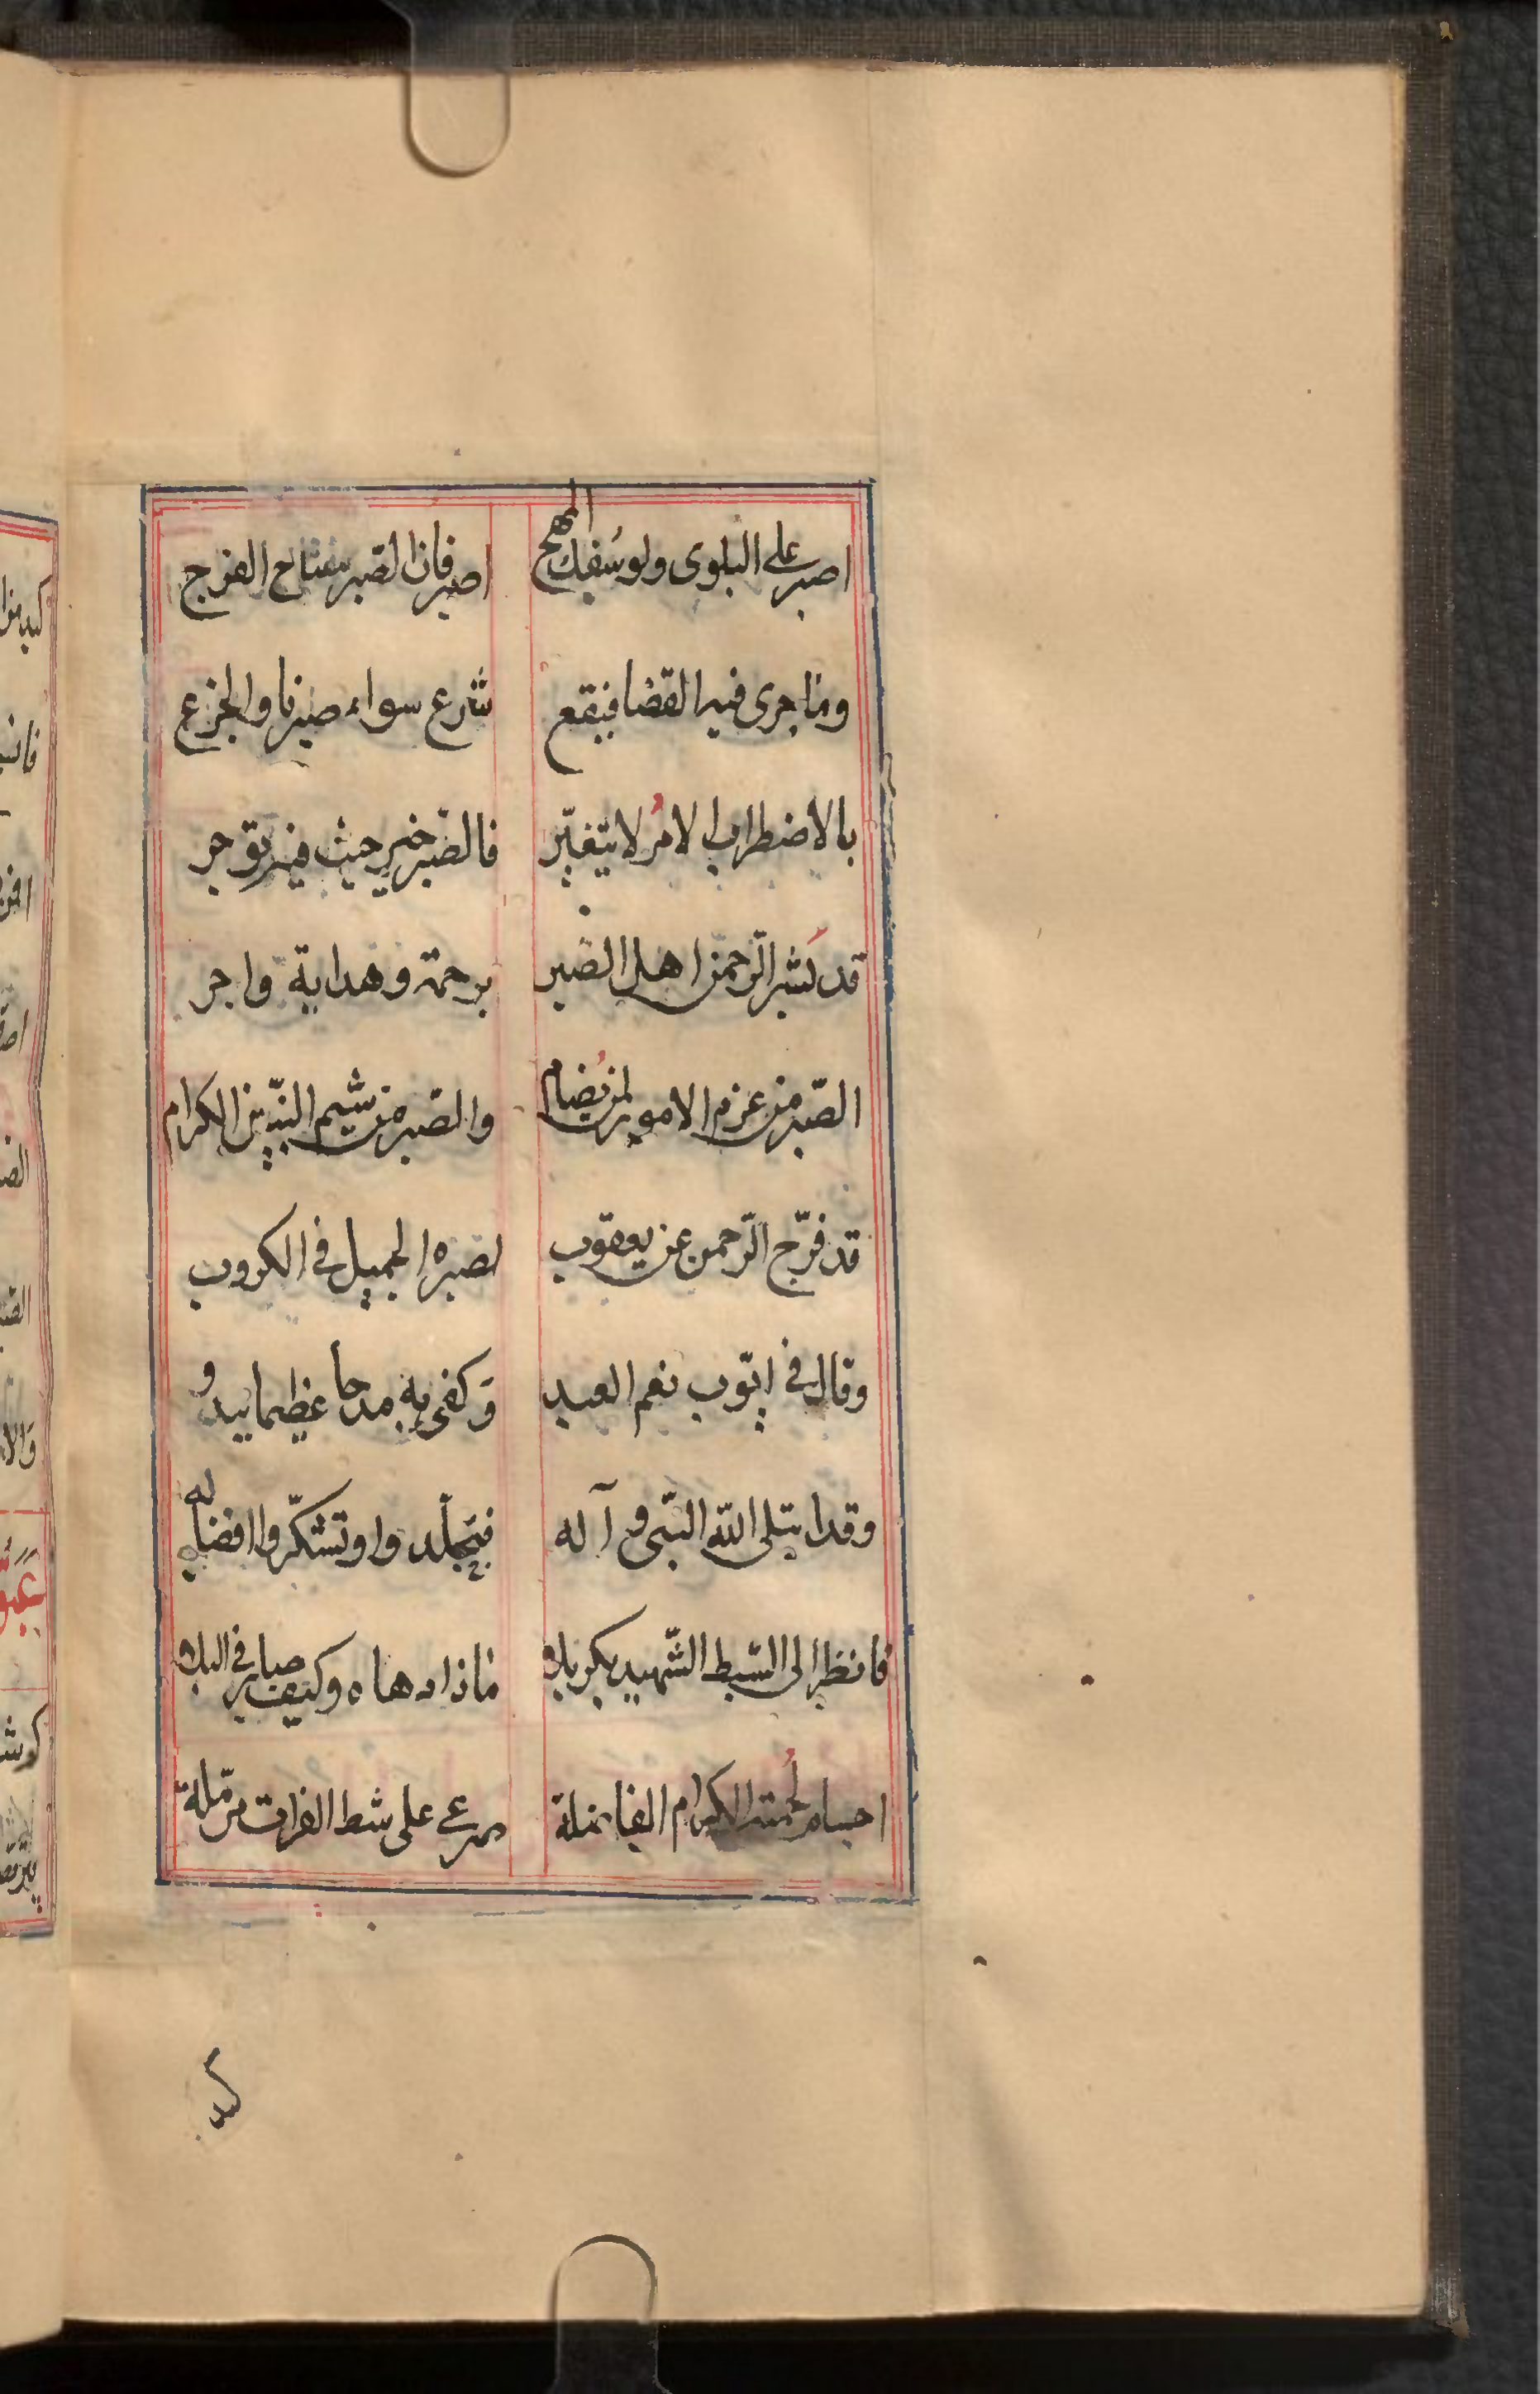 اصبر على البلوى ولو سُفك المهج اصبر فان الصبر مفتاح الفرج
وما جرى فيه القضا فيقع شرع سواء صبرنا والجزع
بالاضطراب الامرُ لا يتغيّر فالصّبر خير حيث فيه توجر
قد بَشر الرّحمن اهل الصبر برحمة وهداية واجر
الصّبر من عزم الامور لمن يُضام والصّبر من شيم النبيّين الكرام
قد فرّج الرّحمن عن يعقوب لصبره الجميل في الكروب
وقال في ايّوب نعم العبد وَكفى به مدحا عظيما يبدو
وقد ابتلى الله النبّى و آله فتجلّدوا وتشكّروا افضاله
فانظر الى السّبط الشّهيد بكربلا ماذا دهاه وكيف صابر في البلا
اجسام لُحمته الكرام الفاضلة صرعى على شط الفرات مرمّلة